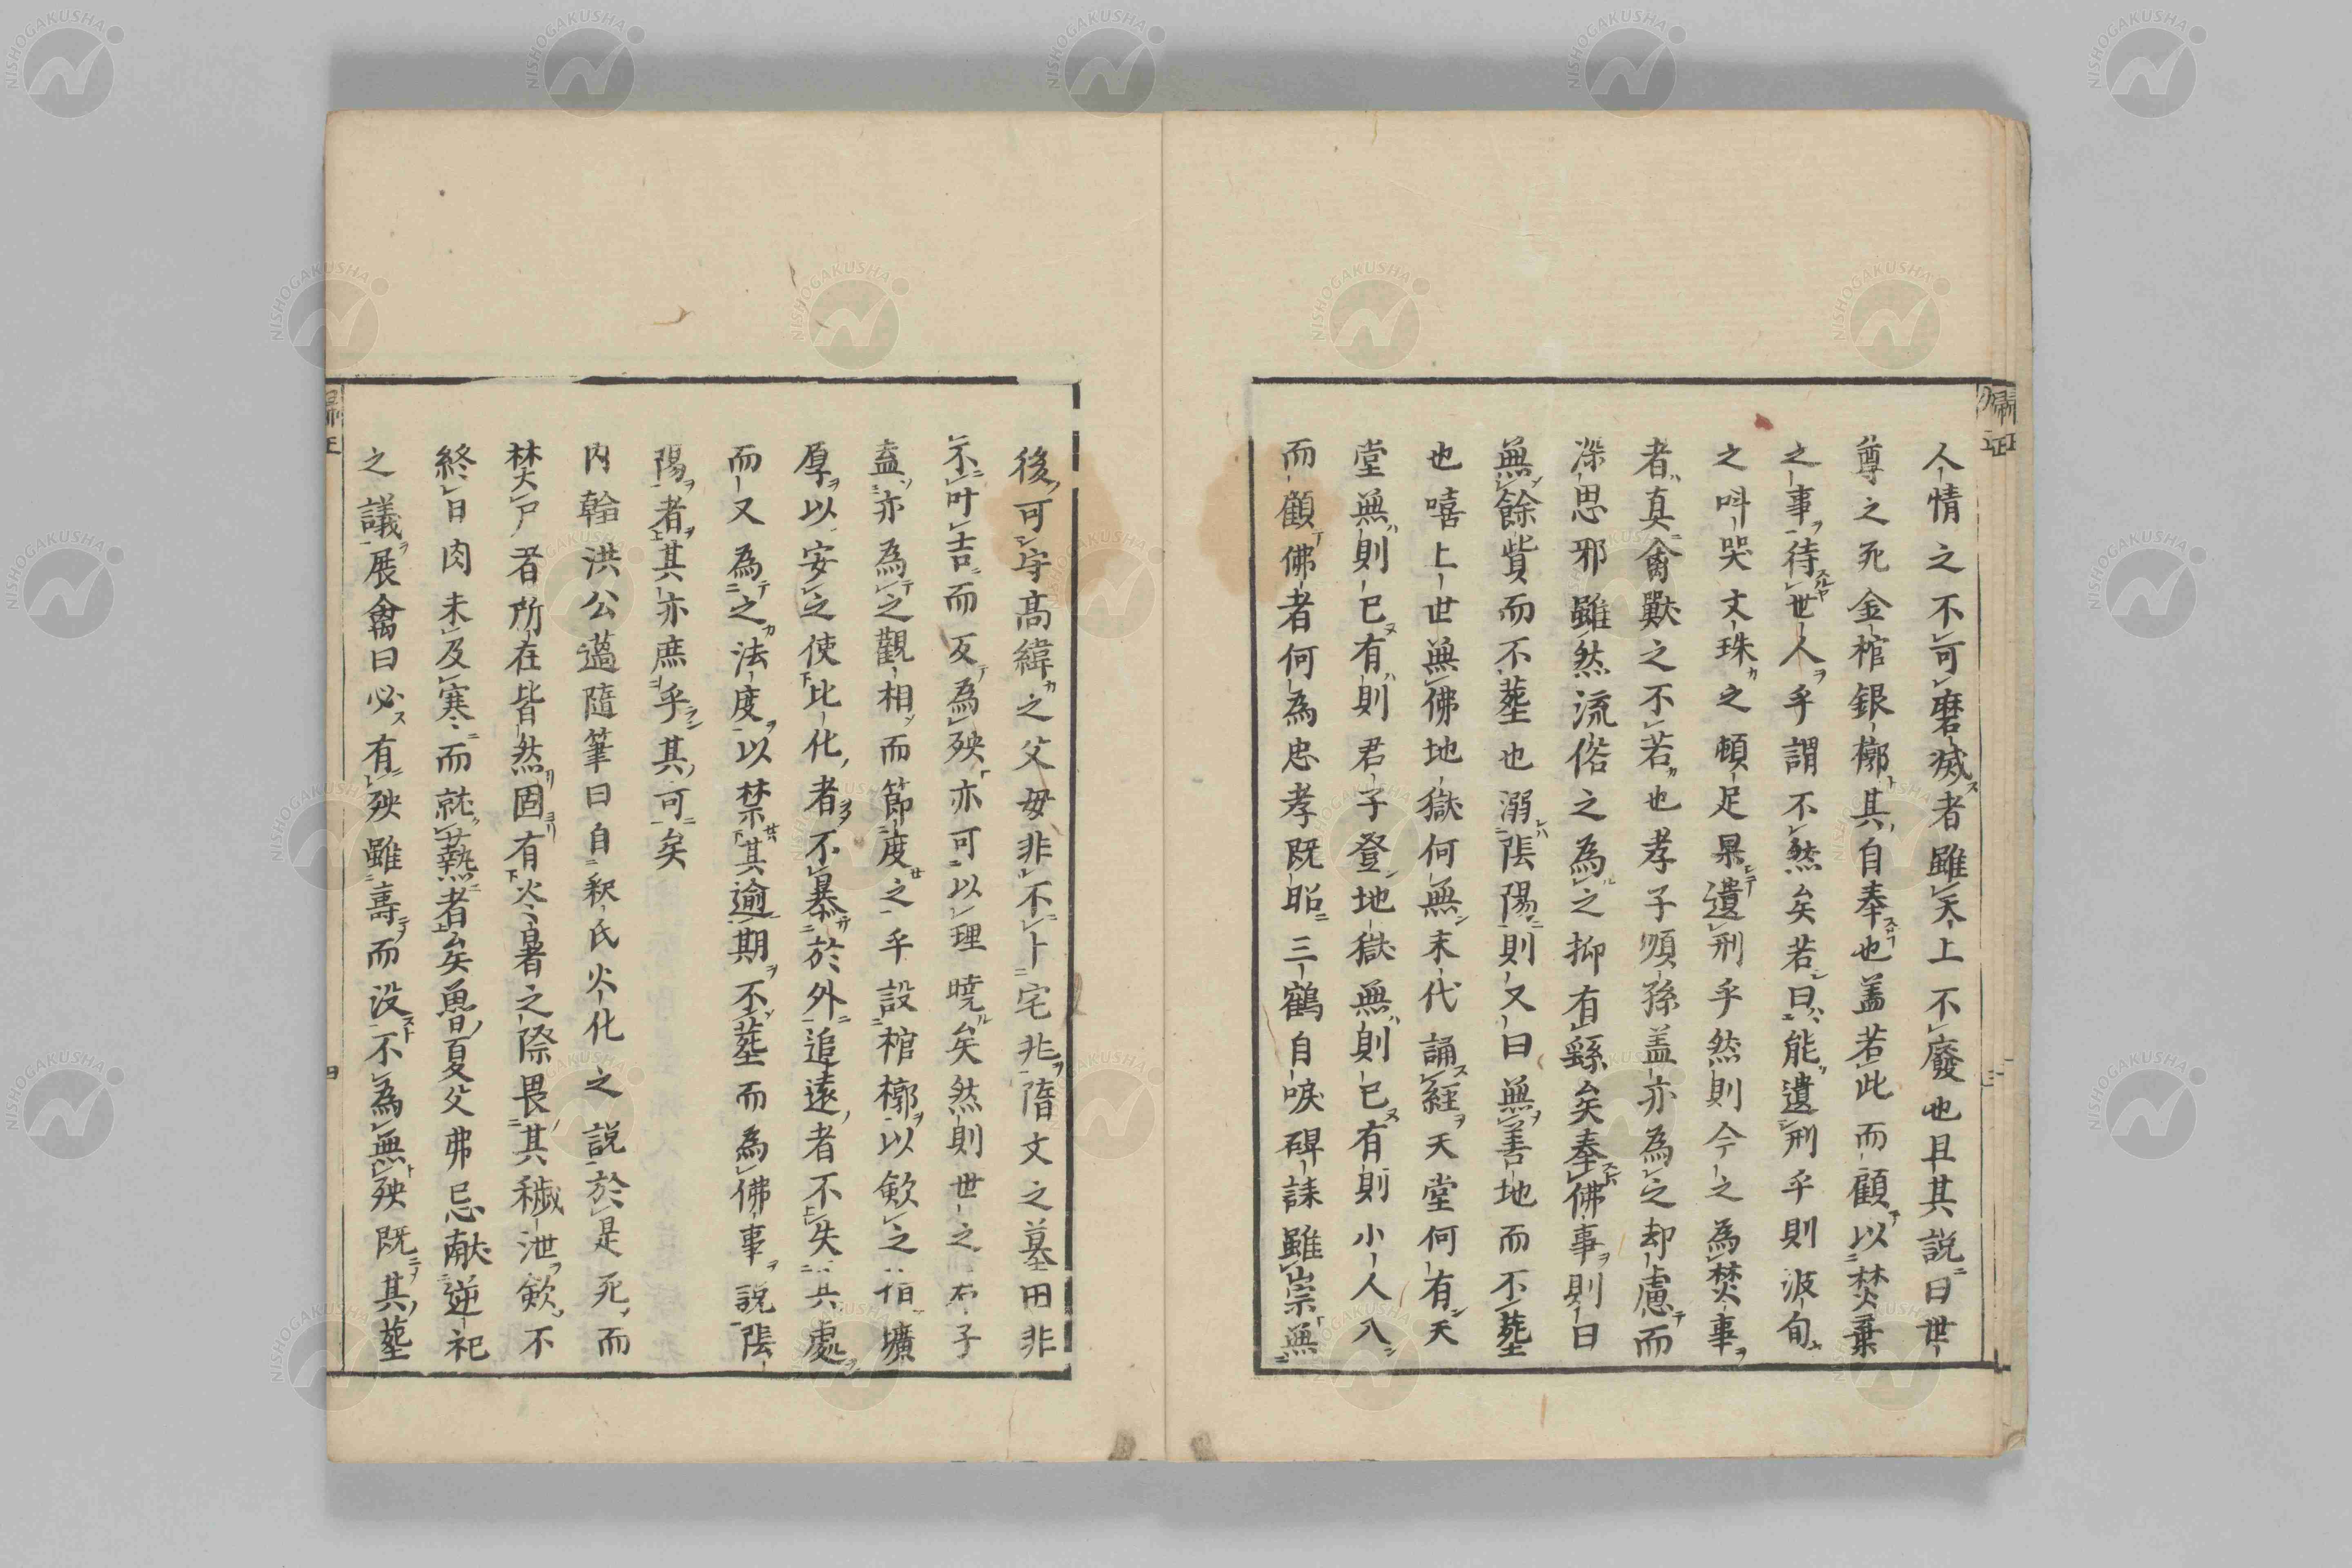 人情之不可磨滅者雖天上不廢也且其説曰世
尊之死金棺銀槨其自奉也盖若此而顧以焚棄
之事待世人乎謂不然矣若曰能遺刑乎則波旬
之呌哭文珠之頓足果遺刑乎然則今之為焚事
者真禽獸之不若也孝子順孫盖亦為之却慮而
深思邪雖然流俗之為之抑有繇矣奉佛事則曰
無餘貲而不塟也溺陰陽則又曰無善地而不塟
也嘻上世無佛地獄何無末代誦經天堂何有天
堂無則已有則君子登地獄無則已有則小人入
而顧佛者何為忠孝既昭三鶴自唳碑誄雖崇無
後可守高緯之父母非不卜宅非隋文之墓田非
不叶吉而反為殃亦可以理曉矣然則世之君子
盍亦為之觀相而節度之乎設棺槨以歛之宿壙
厚以安之使比化者不暴於外追遠者不失其處
而又為之法度以禁其逾期不塟而為佛事説陰
陽者其亦庶乎其可矣
内翰洪公邁隨筆曰自釈氏火化之説於是死而
焚尸者所在皆然固有炎暑之際畏其穢泄歛不
終日肉未及寒而就爇者矣魯夏父弗忌献逆祀
之議展禽曰必有殃雖壽而没不為無殃既其塟
歸正
三
歸正
四
NISHOGAKUSHA